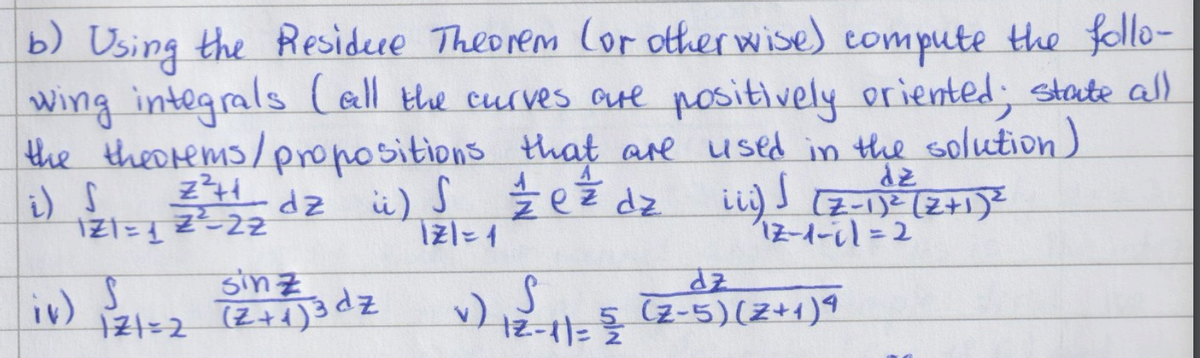 b) Using the Residue Theorem (or otherwise) compute the follo-
wing integrals (all the curves are positively oriented; state all
the theorems/propositions that are used in the solution)
i) ∫_{|z|=1} \frac{z²+1}{z²-2z} dz ii) ∫_{|z|=1} \frac{1}{z} e^{\frac{1}{z}} dz iii) ∫_{|z-1-i|=2} \frac{dz}{(z-1)²(z+1)²}
iv) ∫_{|z|=2} \frac{sin z}{(z+1)³} dz v) ∫_{|z-1|=\frac{5}{2}} \frac{dz}{(z-5)(z+1)⁴}